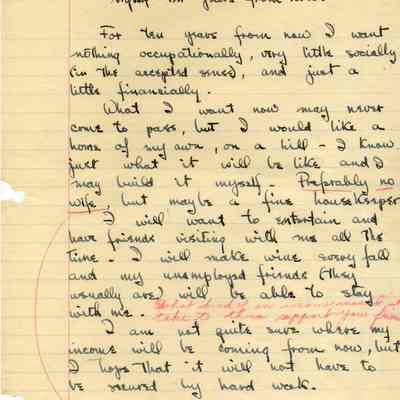 years from now
For ten years from now I want
nothing occupationally, very little socially
(in the accepted sense), and just a
little financially.
What I want now may never
come to pass, but I would like a
home of my own, on a hill - I know
just what it will be like and I
may build it myself. Preferably no
wife, but maybe a fine housekeeper
I will want to entertain and
have friends visiting with me all the
time. I will make wine every fall
and my unemployed friends (they
usually are) will be able to stay
with me.
What kind of an income would it
take to support your friends
I am not quite sure where my
income will be coming from now, but
I hope that it will not have to
be secured by hard work.